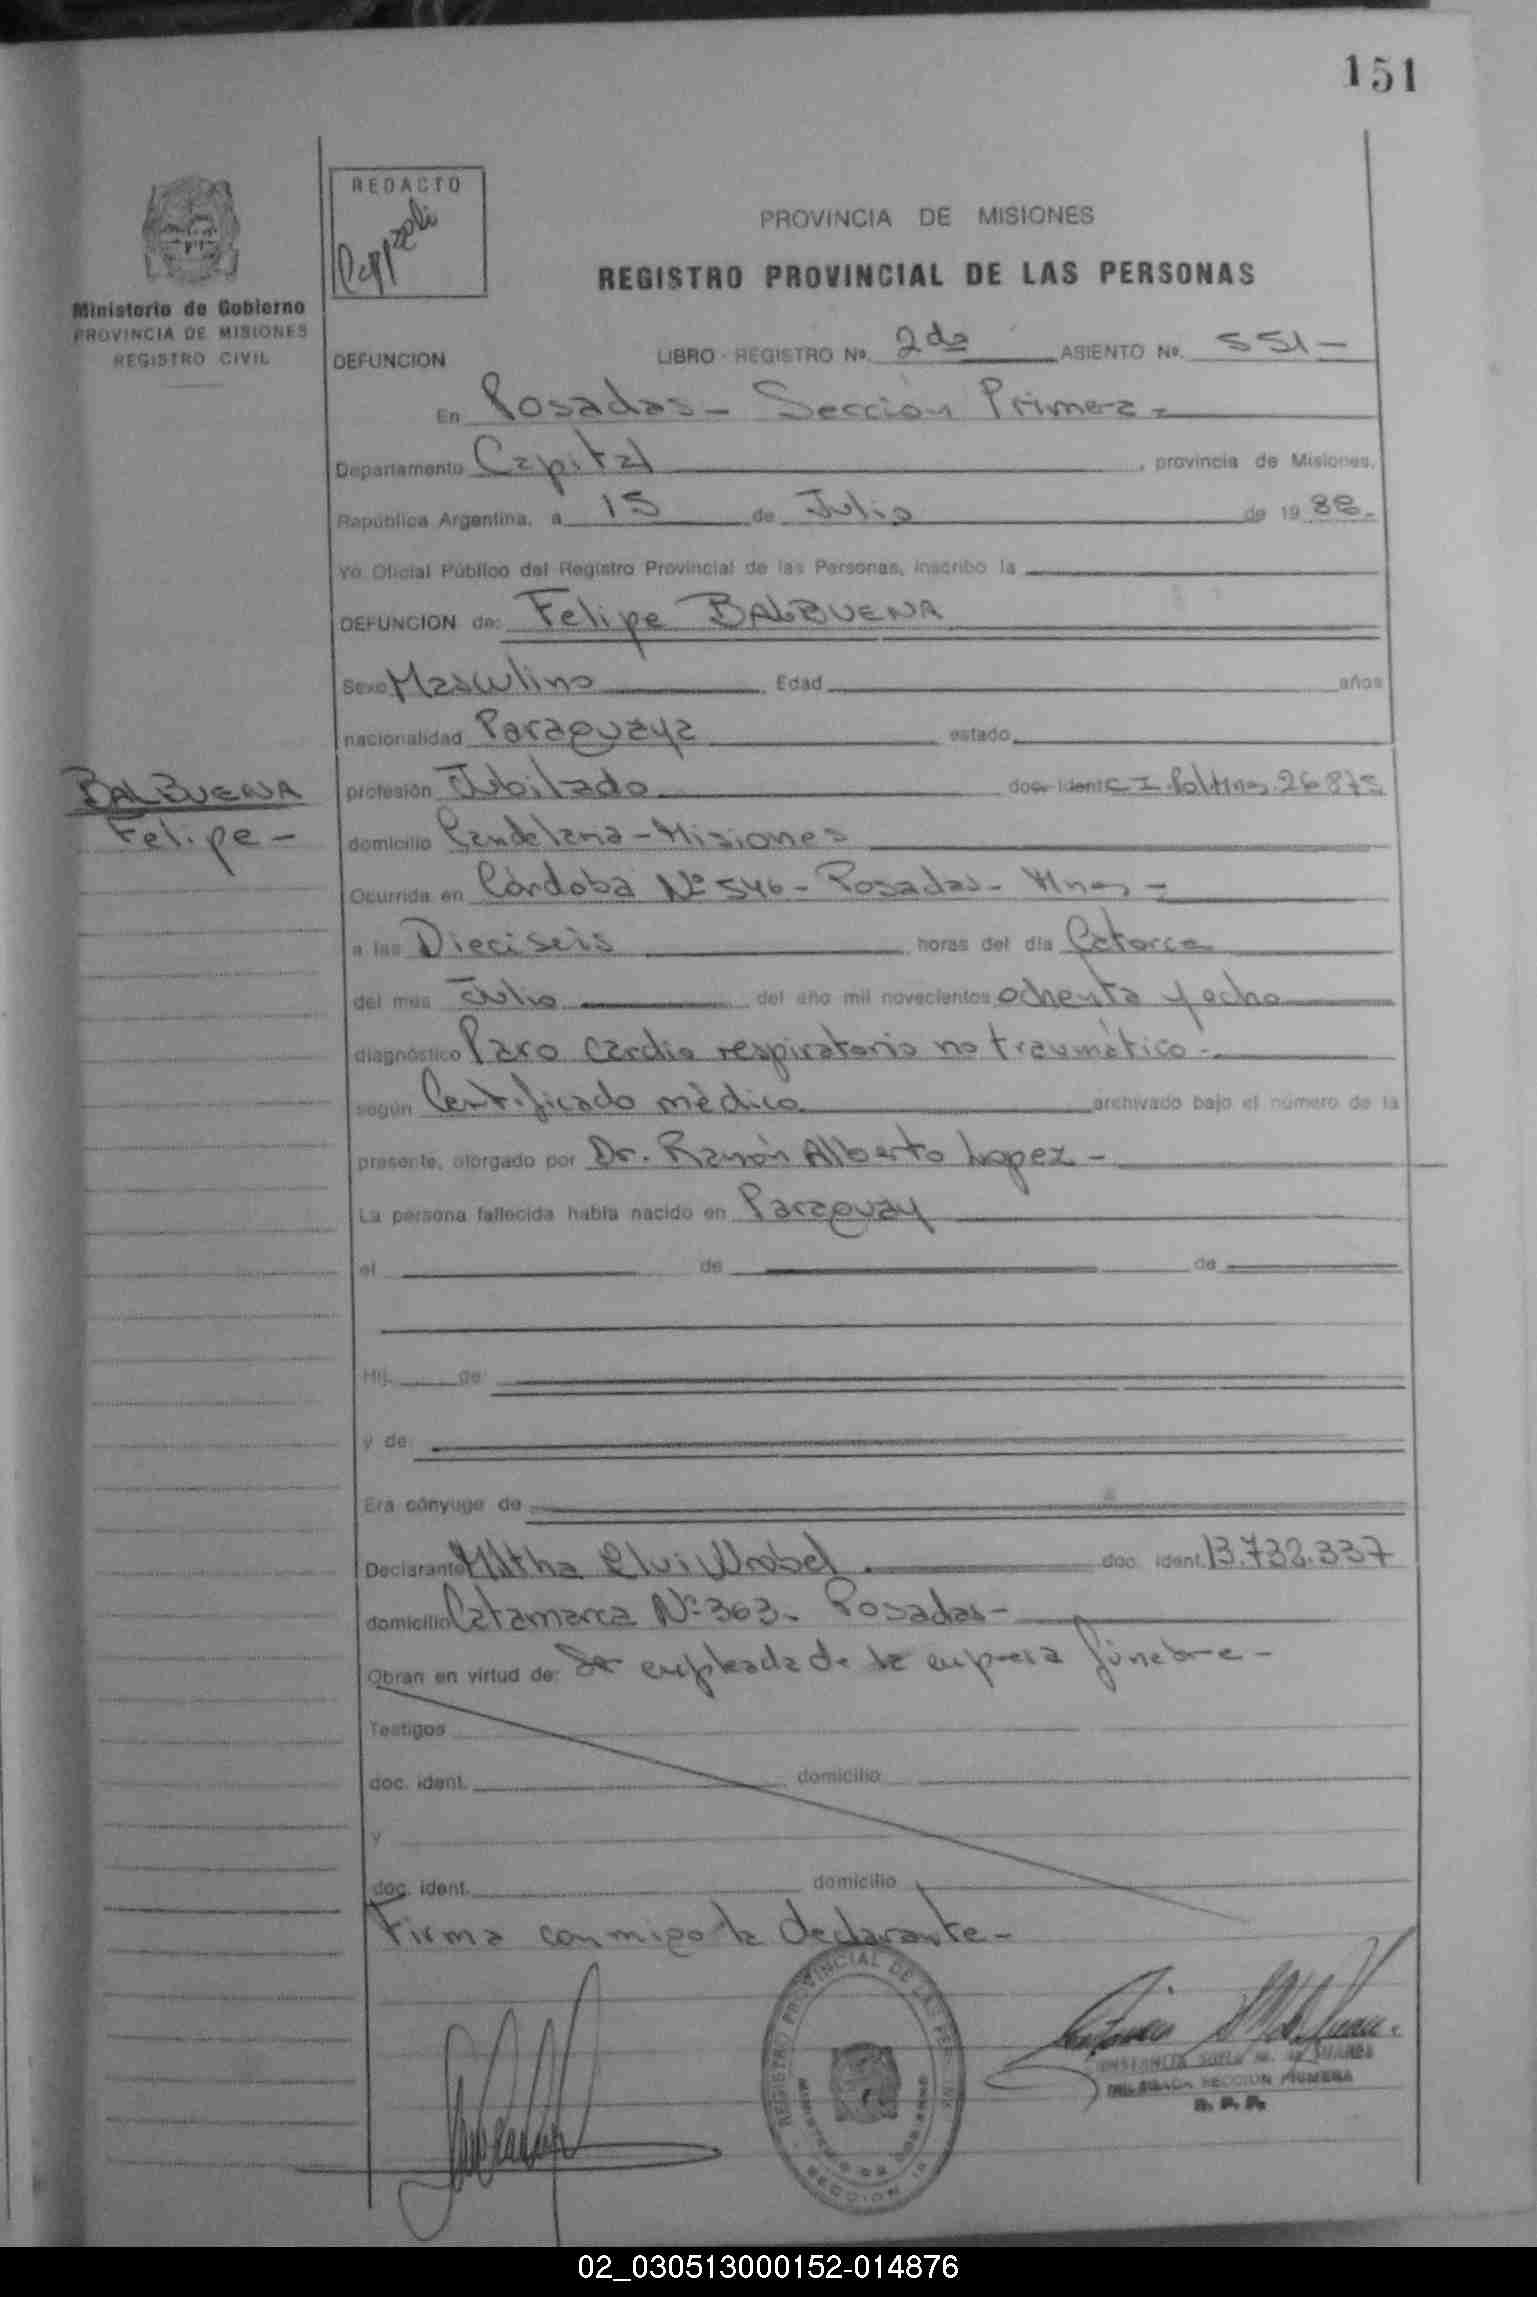 151
REDACTO
PROVINCIA DE MISIONES
REGISTRO PROVINCIAL DE LAS PERSONAS
Ministerio de Gobierno
PROVINCIA DE MISIONES
REGISTRO CIVIL
DEFUNCION LIBRO - REGISTRO No. 2do ASIENTO No. 551 -
En Posadas - Sección Primera -
Departamento Capital , provincia de Misiones,
República Argentina, a 15 de Julio de 19 88 -
Yo Oficial Público del Registro Provincial de las Personas, inscribo la
DEFUNCION de: Felipe BALBUENA
Sexo Masculino Edad años
nacionalidad Paraguaya estado
BALBUENA
Felipe -
profesión Jubilado doc. ident. C I. Pol. Mnes. 26875
domicilio Candelaria - Misiones
Ocurrida en Córdoba Nº 546 - Posadas - Mnes -
a las Dieciseis horas del día Catorce
del mes Julio del año mil novecientos ochenta y ocho
diagnóstico Paro cardio respiratorio no traumático -
según Certificado mèdico archivado bajo el número de la
presente, otorgado por Dr. Ramón Alberto Lopez -
La persona fallecida había nacido en Paraguay
el de de
Hij de
y de
Era cónyuge de
Declarante doc. ident. 13.732.337
domicilio Catamarca Nº 363 - Posadas -
Obran en virtud de: Ser empleada de la empresa fúnebre -
Testigos
doc. ident. domicilio
y
doc. ident. domicilio
Firma conmigo la declarante -
REGISTRO PROVINCIAL DE LAS PERSONAS
MINISTERIO DE GOBIERNO
SECCION 1a
DELEGADA SECCION PRIMERA
R. P. P.
02_030513000152-014876